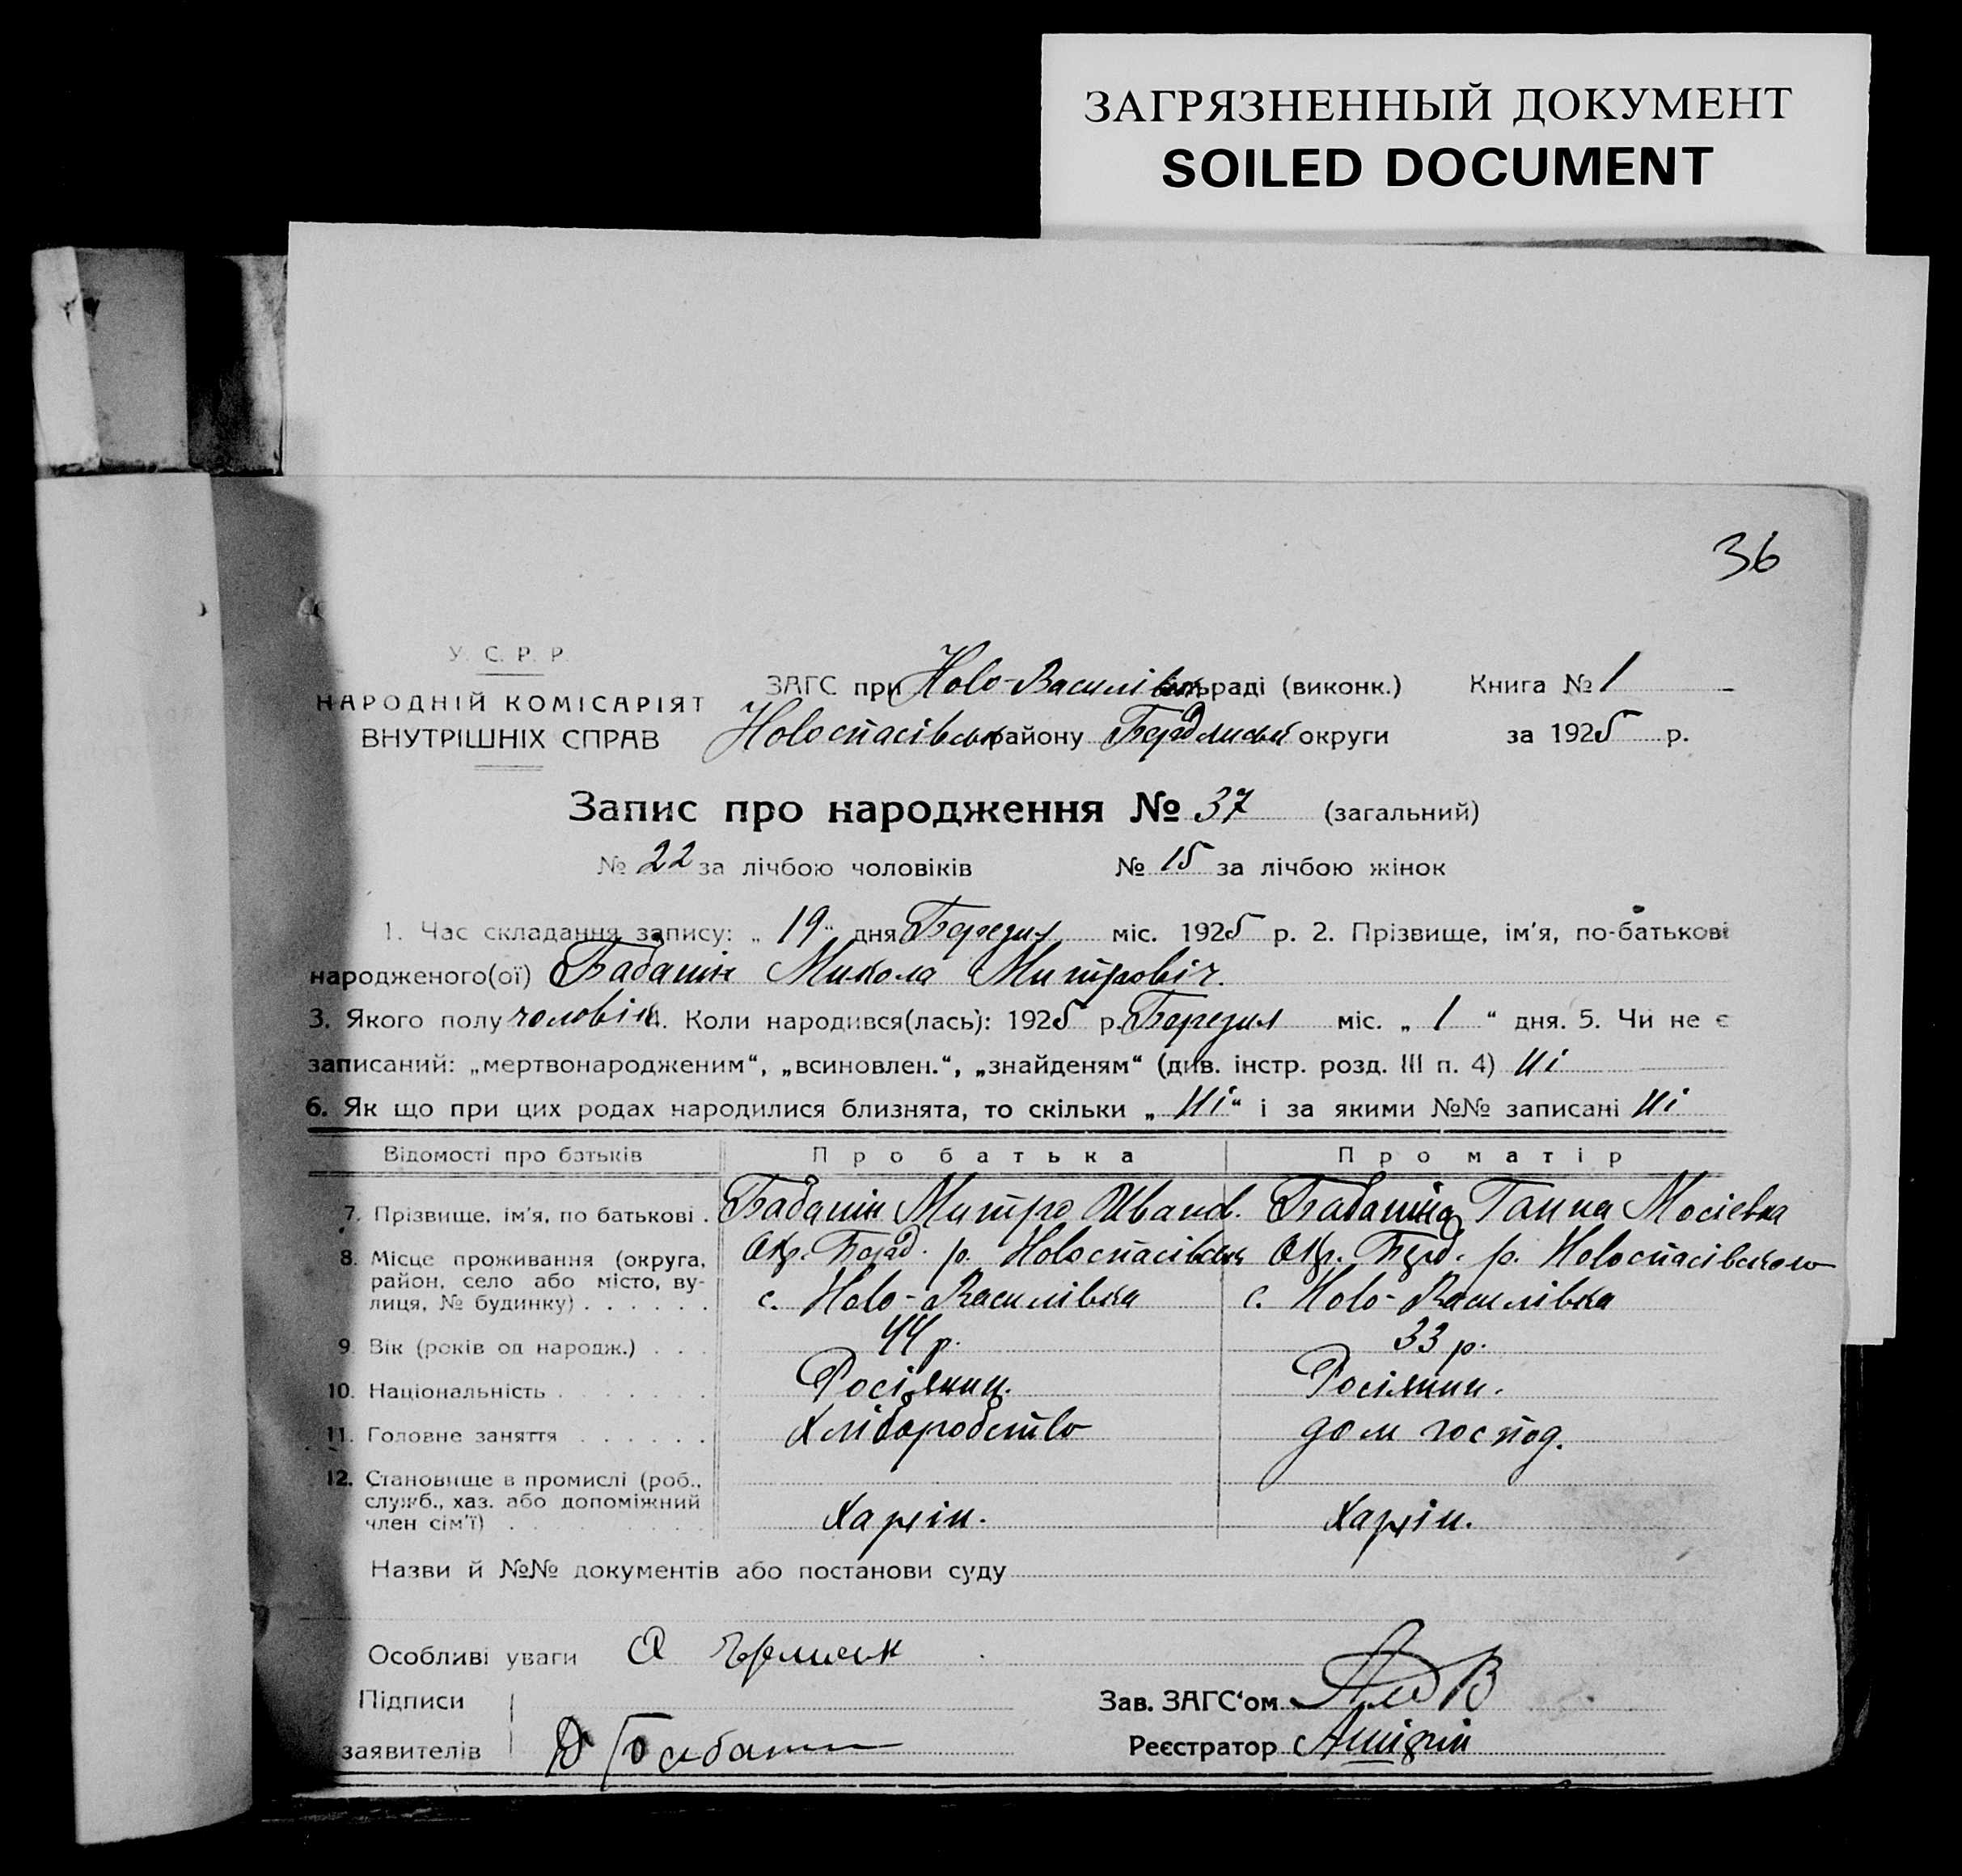 ЗАГРЯЗНЕННЫЙ ДОКУМЕНТ
SOILED DOCUMENT
36
У. С. Р. Р.
НАРОДНІЙ КОМІСАРІЯТ
ВНУТРІШНІХ СПРАВ
ЗАГС при Ново-Василівськ раді (виконк.) Книга № 1
Новоспасівськ району Бердянськ округи за 1925 р.
Запис про народження № 37 (загальний)
№ 22 за лічбою чоловіків № 15 за лічбою жінок
1. Час складання запису: „ 19 " дня Березня міс. 1925 р. 2. Прізвище, ім'я, по-батькові
народженого(ої) Бабанін Микола Митровіч.
3. Якого полу чоловік 4. Коли народився(лась): 1925 р. Березня міс. „ 1 " дня. 5. Чи не є
записаний: „мертвонародженим", „всиновлен.", „знайденям" (див. інстр. розд. III п. 4) Ні
6. Як що при цих родах народилися близнята, то скільки „ Ні " і за якими №№ записані Ні
Відомості про батьків Про батька Про матір
7. Прізвище, ім'я, по батькові . Бабанін Митро Иванов. Бабаніна Ганна Мосієвна
8. Місце проживання (округа, район, село або місто, вулиця, № будинку) . . . . . .
Окр. Берд. р. Новоспасівськ Окр. Берд. р. Новоспасівського
с. Ново-Василівка с. Ново-Василівка
9. Вік (років од народж.) . . . 44 р. 33 р.
10. Національність . . . . . . . Росіянин. Росіянин.
11. Головне заняття . . . . . . Хліборобство дом господ.
12. Становище в промислі (роб., служб., хаз. або допоміжний член сім'ї) . . . . . . Хазяін. Хазяін.
Назви й №№ документів або постанови суду
Особливі уваги
Підписи
заявителів Д Бабанин
Зав. ЗАГС'ом
Реєстратор